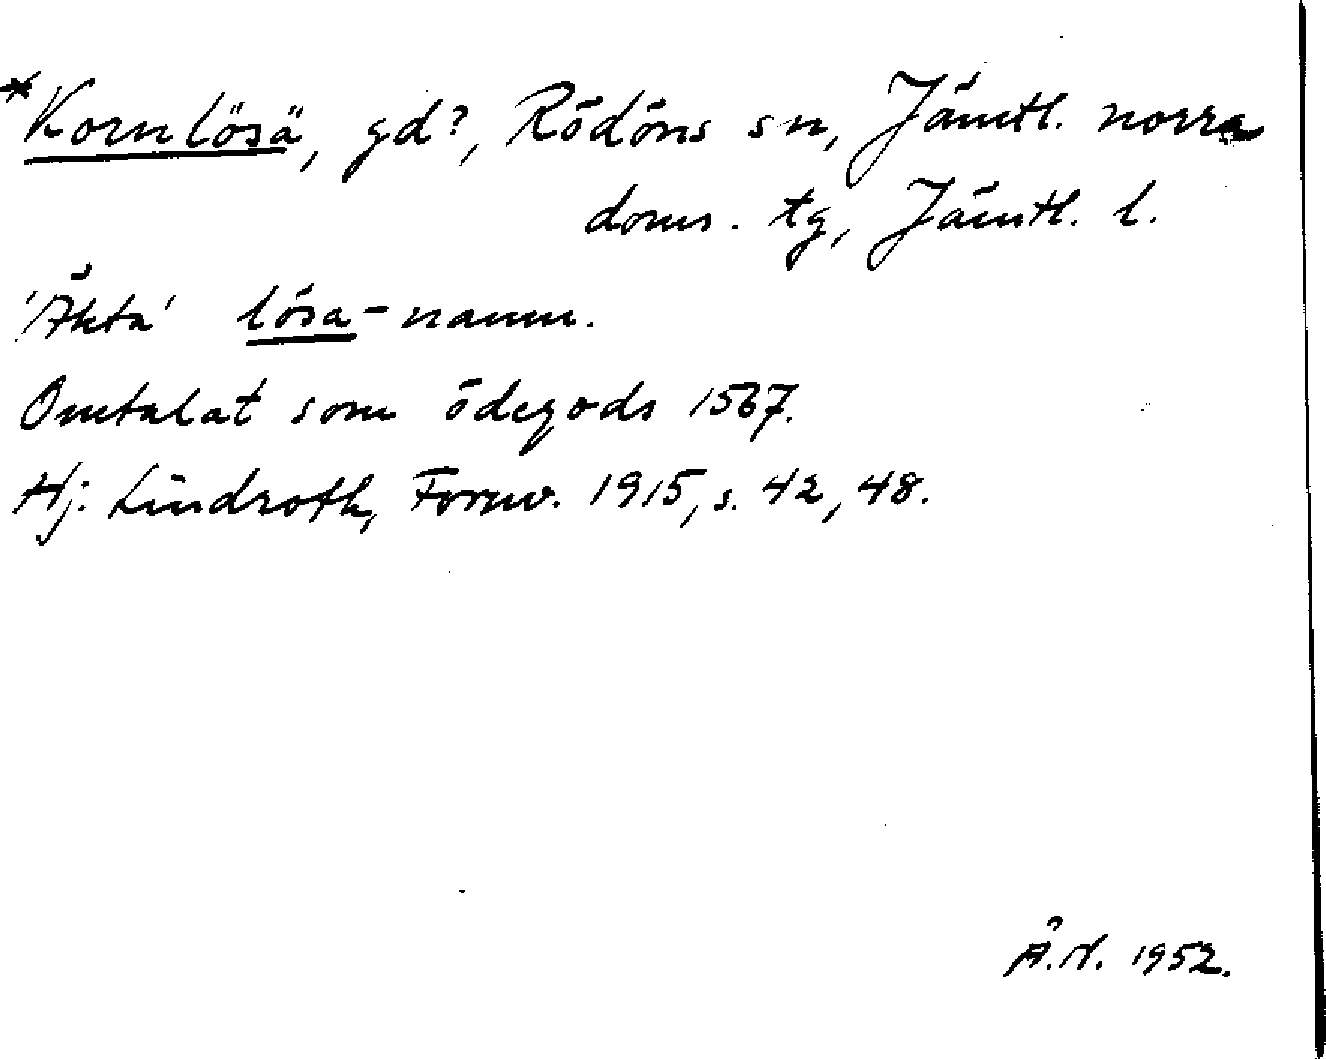 *Kornlösä, gd?, Rödöns sn, Jämtl. norra
doms. tg, Jämtl. l.
'Äkta' lösa-namn.
Omtalat som ödegods 1567.
Hj. Lindroth, Fornv. 1915, s. 42, 48.
Å.N. 1952.